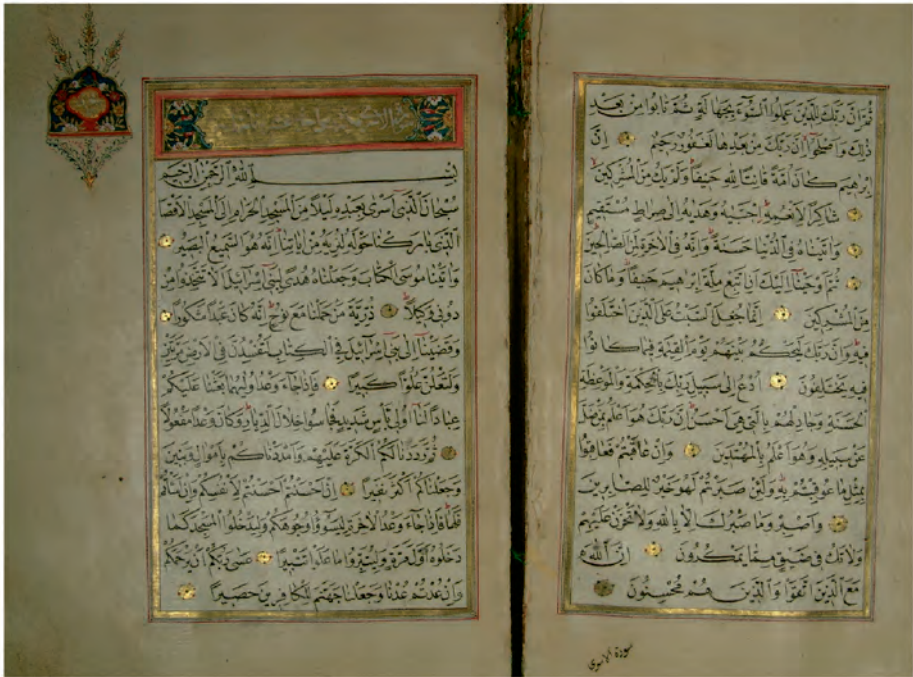 ثُمَّ اِنَّ رَبَّكَ لِلَّذِينَ عَمِلُوا السُّوٓءَ بِجَهَالَةٍ ثُمَّ تَابُوا مِنْ بَعْدِ
ذٰلِكَ وَاَصْلَحُٓوا اِنَّ رَبَّكَ مِنْ بَعْدِهَا لَغَفُورٌ رَحِيمٌ اِنَّ
اِبْرٰهِيمَ كَانَ اُمَّةً قَانِتًا لِلّٰهِ حَنِيفًا وَلَمْ يَكُ مِنَ الْمُشْرِكِينَ
شَاكِرًا لِاَنْعُمِهِ اِجْتَبٰيهُ وَهَدٰيهُ اِلٰى صِرَاطٍ مُسْتَقِيمٍ
وَاٰتَيْنَاهُ فِي الدُّنْيَا حَسَنَةً وَاِنَّهُ فِي الْاٰخِرَةِ لَمِنَ الصَّالِحِينَ
ثُمَّ اَوْحَيْنَٓا اِلَيْكَ اَنِ اتَّبِعْ مِلَّةَ اِبْرٰهِيمَ حَنِيفًا وَمَا كَانَ
مِنَ الْمُشْرِكِينَ اِنَّمَا جُعِلَ السَّبْتُ عَلَى الَّذِينَ اخْتَلَفُوا
فِيهِ وَاِنَّ رَبَّكَ لَيَحْكُمُ بَيْنَهُمْ يَوْمَ الْقِيٰمَةِ فِيمَا كَانُوا
فِيهِ يَخْتَلِفُونَ اُدْعُ اِلٰى سَبِيلِ رَبِّكَ بِالْحِكْمَةِ وَالْمَوْعِظَةِ
الْحَسَنَةِ وَجَادِلْهُمْ بِالَّتِي هِيَ اَحْسَنُ اِنَّ رَبَّكَ هُوَ اَعْلَمُ بِمَنْ ضَلَّ
عَنْ سَبِيلِهِ وَهُوَ اَعْلَمُ بِالْمُهْتَدِينَ وَاِنْ عَاقَبْتُمْ فَعَاقِبُوا
بِمِثْلِ مَا عُوقِبْتُمْ بِهِ وَلَئِنْ صَبَرْتُمْ لَهُوَ خَيْرٌ لِلصَّابِرِينَ
وَاصْبِرْ وَمَا صَبْرُكَ اِلَّا بِاللّٰهِ وَلَا تَحْزَنْ عَلَيْهِمْ
وَلَا تَكُ فِي ضَيْقٍ مِمَّا يَمْكُرُونَ اِنَّ اللّٰهَ
مَعَ الَّذِينَ اتَّقَوْا وَالَّذِينَ هُمْ مُحْسِنُونَ
سورة الاسرى
بِسْمِ اللّٰهِ الرَّحْمٰنِ الرَّحِيمِ
سُبْحَانَ الَّذِٓي اَسْرٰى بِعَبْدِهِ لَيْلًا مِنَ الْمَسْجِدِ الْحَرَامِ اِلَى الْمَسْجِدِ الْاَقْصَا
الَّذِي بَارَكْنَا حَوْلَهُ لِنُرِيَهُ مِنْ اٰيَاتِنَا اِنَّهُ هُوَ السَّمِيعُ الْبَصِيرُ
وَاٰتَيْنَا مُوسَى الْكِتَابَ وَجَعَلْنَاهُ هُدًى لِبَنِٓي اِسْرَائِيلَ اَلَّا تَتَّخِذُوا مِنْ
دُونِي وَكِيلًا ذُرِّيَّةَ مَنْ حَمَلْنَا مَعَ نُوحٍ اِنَّهُ كَانَ عَبْدًا شَكُورًا
وَقَضَيْنَٓا اِلٰى بَنِٓي اِسْرَائِيلَ فِي الْكِتَابِ لَتُفْسِدُنَّ فِي الْاَرْضِ مَرَّتَيْنِ
وَلَتَعْلُنَّ عُلُوًّا كَبِيرًا فَاِذَا جَٓاءَ وَعْدُ اُولٰيهُمَا بَعَثْنَا عَلَيْكُمْ
عِبَادًا لَنَٓا اُولِي بَأْسٍ شَدِيدٍ فَجَاسُوا خِلَالَ الدِّيَارِ وَكَانَ وَعْدًا مَفْعُولًا
ثُمَّ رَدَدْنَا لَكُمُ الْكَرَّةَ عَلَيْهِمْ وَاَمْدَدْنَاكُمْ بِاَمْوَالٍ وَبَنِينَ
وَجَعَلْنَاكُمْ اَكْثَرَ نَفِيرًا اِنْ اَحْسَنْتُمْ اَحْسَنْتُمْ لِاَنْفُسِكُمْ وَاِنْ اَسَأْتُمْ
فَلَهَا فَاِذَا جَٓاءَ وَعْدُ الْاٰخِرَةِ لِيَسُٓوؤُا وُجُوهَكُمْ وَلِيَدْخُلُوا الْمَسْجِدَ كَمَا
دَخَلُوهُ اَوَّلَ مَرَّةٍ وَلِيُتَبِّرُوا مَا عَلَوْا تَتْبِيرًا عَسٰى رَبُّكُمْ اَنْ يَرْحَمَكُمْ
وَاِنْ عُدْتُمْ عُدْنَا وَجَعَلْنَا جَهَنَّمَ لِلْكَافِرِينَ حَصِيرًا